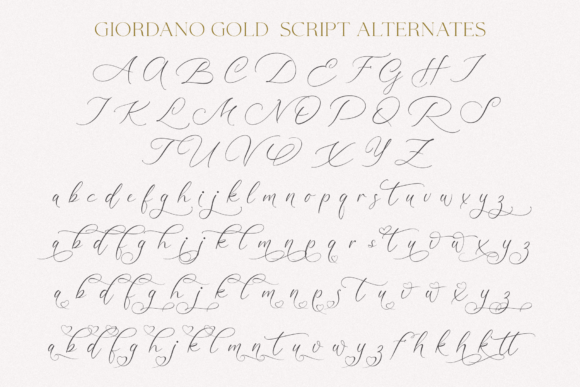 GIORDANO GOLD SCRIPT ALTERNATES
A A B C D E F G H I
J K L M N O P Q R S
T U V O X Y Z
a b c d e f g h i j k l m n o p q r s t u v w x y z
a b d f g h i j k l m n p q r s t u v w x y z
a b d f g h j k l m n p s t u v w x y z
a b d f g h j k l m n t u v w y z f h k h k tt